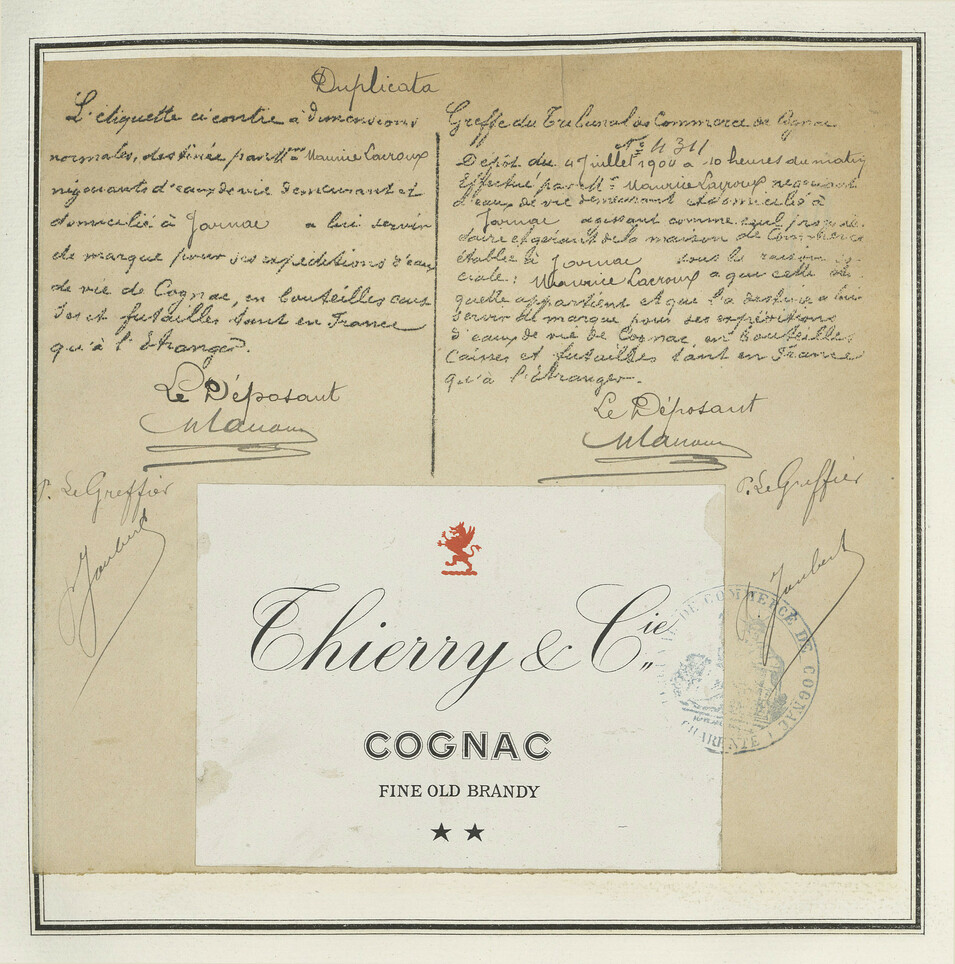 Duplicata
L'étiquette ci contre à dimensions
normales, destinée par Mr Maurice Lacroux
négociants d'eaux de vie demeurant et
domicilié à Jarnac a lui servir
de marque pour ses expéditions d'eaux
de vie de Cognac, en bouteilles cais
ses et futailles tant en France
qu'à l'Etranger.
Le Déposant
P. Le Greffier
Joubert
Greffe du Tribunal de Commerce de Cognac
No 4311
Dépôt du 4 Juillet 1900 a 10 heures du matin
Effectué par Mr Maurice Lacroux negociant
d'eaux de vie demeurant et domicilié à
Jarnac agissant comme seul proprié
taire et gérant de la maison de Commerce
établie à Jarnac sous la raison so
ciale : Maurice Lacroux a qui cette éti
quette appartient et qui l'a destinée a lui
servir de marque pour ses expéditions
d'eaux de vie de Cognac, en bouteilles
caisses et futailles tant en France
qu'à l'Etranger.
Le Déposant
P. Le Greffier
Joubert
Thierry & Cie
COGNAC
FINE OLD BRANDY
★ ★
DE COMMERCE DE COGNAC
CHARENTE